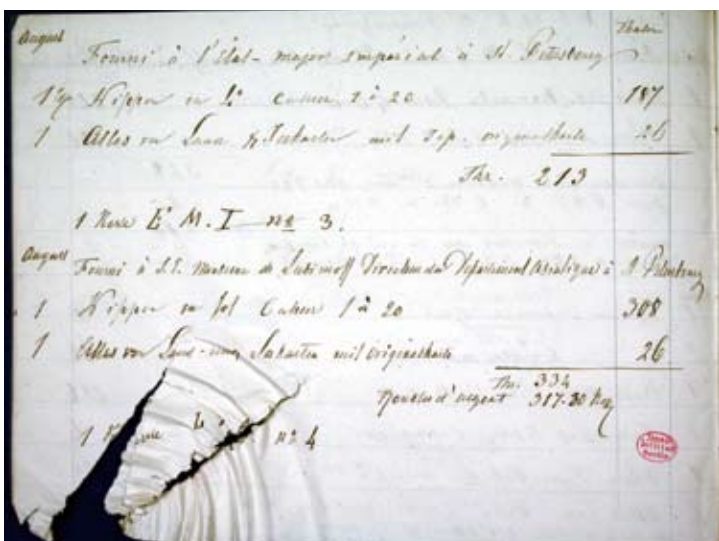 August Thaler
Fourni à l'État-major impérial à St. Petersbourg
1 Nippon in 4° Cahier 1 à 20 187
1 Atlas von Land & Seekarten mit Jap. originalkarte 26
Thr. 213
1 Kiste E. M. I. no 3.
August Fourni à S.E. Monsieur de Directeur du Departement Asiatique à St Petersbourg
1 Nippon in fol Cahier 1 à 20 308
1 Atlas von Land- und Seekarten mit Originalkarte 26
Thr. 334
Roubles d'argent 317.30 Kop
1 no 4